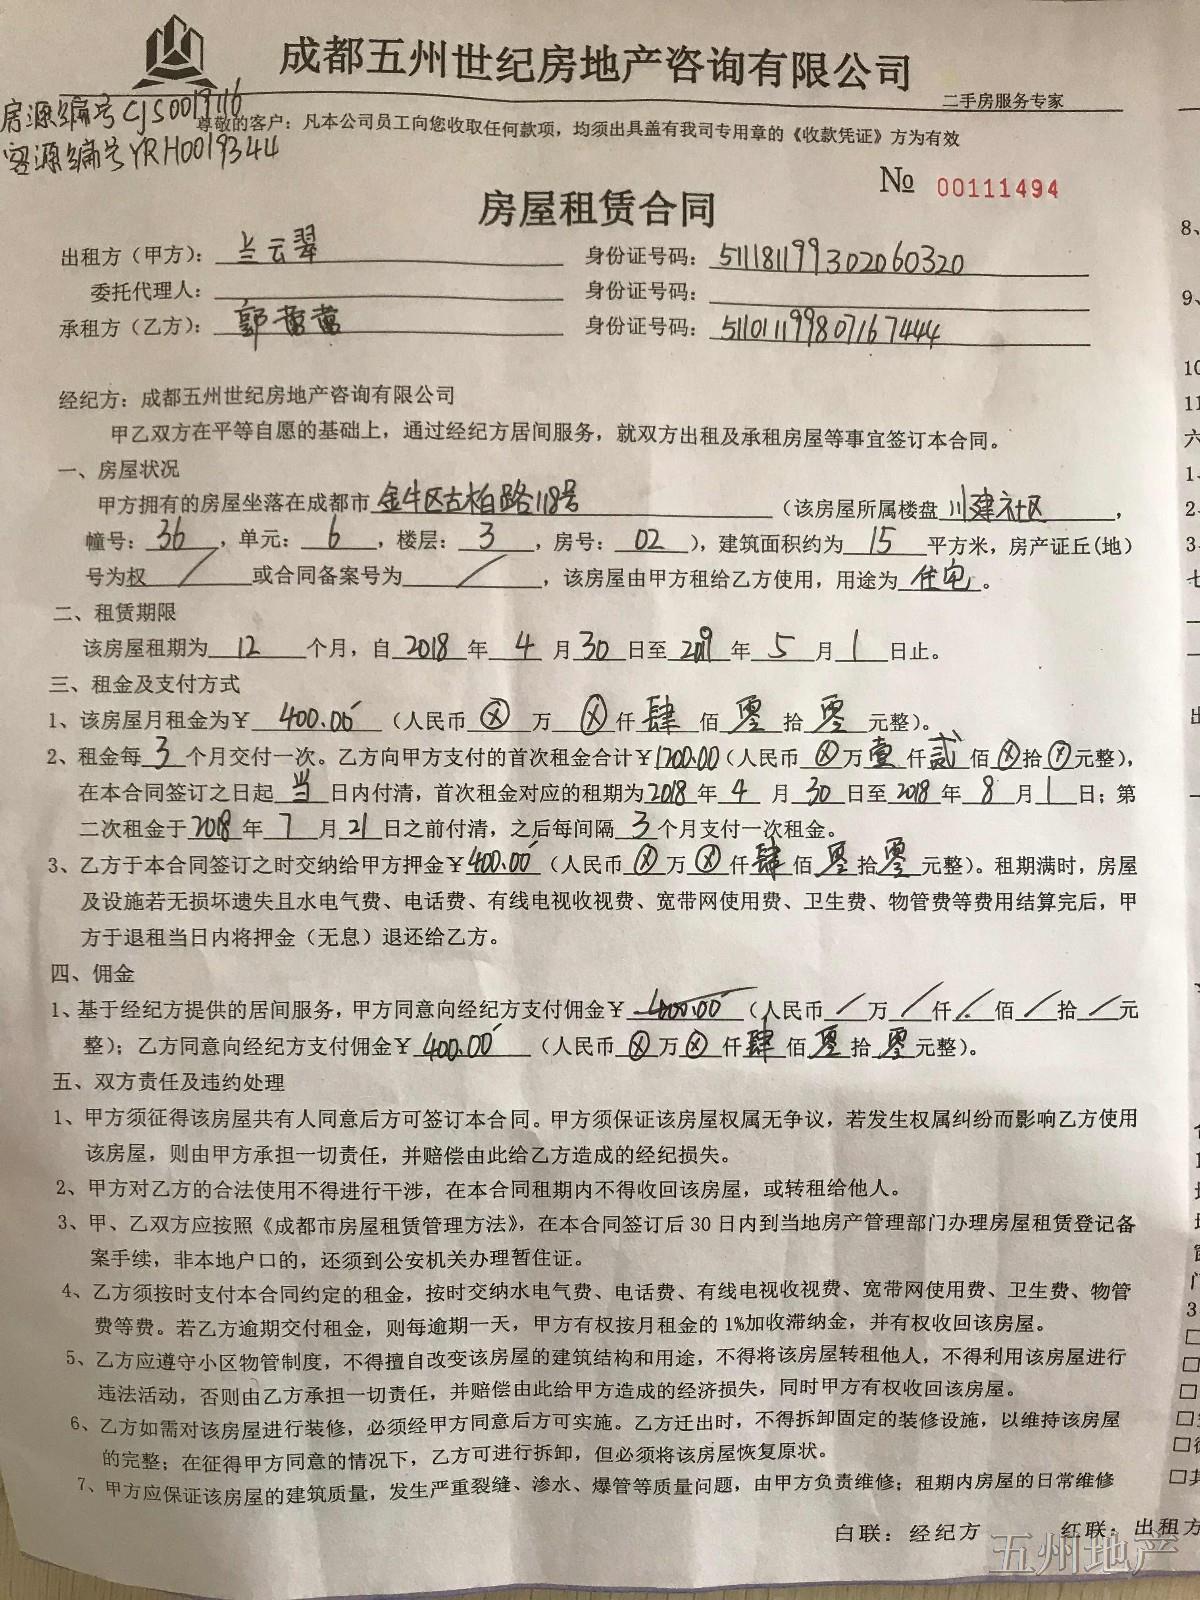 成都五州世纪房地产咨询有限公司
二手房服务专家
房源编号CJS0019116
尊敬的客户：凡本公司员工向您收取任何款项，均须出具盖有我司专用章的《收款凭证》方为有效
客源编号YRH0019344
№ 00111494
房屋租赁合同
出租方（甲方）：兰云翠 身份证号码：511181199302060320
委托代理人： 身份证号码：
承租方（乙方）：郭莺莺 身份证号码：511011199807167444
经纪方：成都五州世纪房地产咨询有限公司
甲乙双方在平等自愿的基础上，通过经纪方居间服务，就双方出租及承租房屋等事宜签订本合同。
一、房屋状况
甲方拥有的房屋坐落在成都市金牛区古柏路118号（该房屋所属楼盘川建社区，
幢号：36，单元：6，楼层：3，房号：02），建筑面积约为15平方米，房产证丘(地)
号为权／或合同备案号为／，该房屋由甲方租给乙方使用，用途为住宅。
二、租赁期限
该房屋租期为12个月，自2018年4月30日至2019年5月1日止。
三、租金及支付方式
1、该房屋月租金为￥400.00（人民币ⓧ万ⓧ仟肆佰零拾零元整）。
2、租金每3个月交付一次。乙方向甲方支付的首次租金合计￥1200.00（人民币ⓧ万壹仟贰佰ⓧ拾ⓧ元整），
在本合同签订之日起当日内付清，首次租金对应的租期为2018年4月30日至2018年8月1日；第
二次租金于2018年7月21日之前付清，之后每间隔3个月支付一次租金。
3、乙方于本合同签订之时交纳给甲方押金￥400.00（人民币ⓧ万ⓧ仟肆佰零拾零元整）。租期满时，房屋
及设施若无损坏遗失且水电气费、电话费、有线电视收视费、宽带网使用费、卫生费、物管费等费用结算完后，甲
方于退租当日内将押金（无息）退还给乙方。
四、佣金
1、基于经纪方提供的居间服务，甲方同意向经纪方支付佣金￥400.00（人民币／万／仟／佰／拾／元
整）；乙方同意向经纪方支付佣金￥400.00（人民币ⓧ万ⓧ仟肆佰零拾零元整）。
五、双方责任及违约处理
1、甲方须征得该房屋共有人同意后方可签订本合同。甲方须保证该房屋权属无争议，若发生权属纠纷而影响乙方使用
该房屋，则由甲方承担一切责任，并赔偿由此给乙方造成的经纪损失。
2、甲方对乙方的合法使用不得进行干涉，在本合同租期内不得收回该房屋，或转租给他人。
3、甲、乙双方应按照《成都市房屋租赁管理方法》，在本合同签订后30日内到当地房产管理部门办理房屋租赁登记备
案手续，非本地户口的，还须到公安机关办理暂住证。
4、乙方须按时支付本合同约定的租金，按时交纳水电气费、电话费、有线电视收视费、宽带网使用费、卫生费、物管
费等费。若乙方逾期交付租金，则每逾期一天，甲方有权按月租金的1%加收滞纳金，并有权收回该房屋。
5、乙方应遵守小区物管制度，不得擅自改变该房屋的建筑结构和用途，不得将该房屋转租他人，不得利用该房屋进行
违法活动，否则由乙方承担一切责任，并赔偿由此给甲方造成的经济损失，同时甲方有权收回该房屋。
6、乙方如需对该房屋进行装修，必须经甲方同意后方可实施。乙方迁出时，不得拆卸固定的装修设施，以维持该房屋
的完整；在征得甲方同意的情况下，乙方可进行拆卸，但必须将该房屋恢复原状。
7、甲方应保证该房屋的建筑质量，发生严重裂缝、渗水、爆管等质量问题，由甲方负责维修；租期内房屋的日常维修
白联：经纪方 红联：出租方
五州地产
8、
9、
10
11
六
1、
2、
3、
七